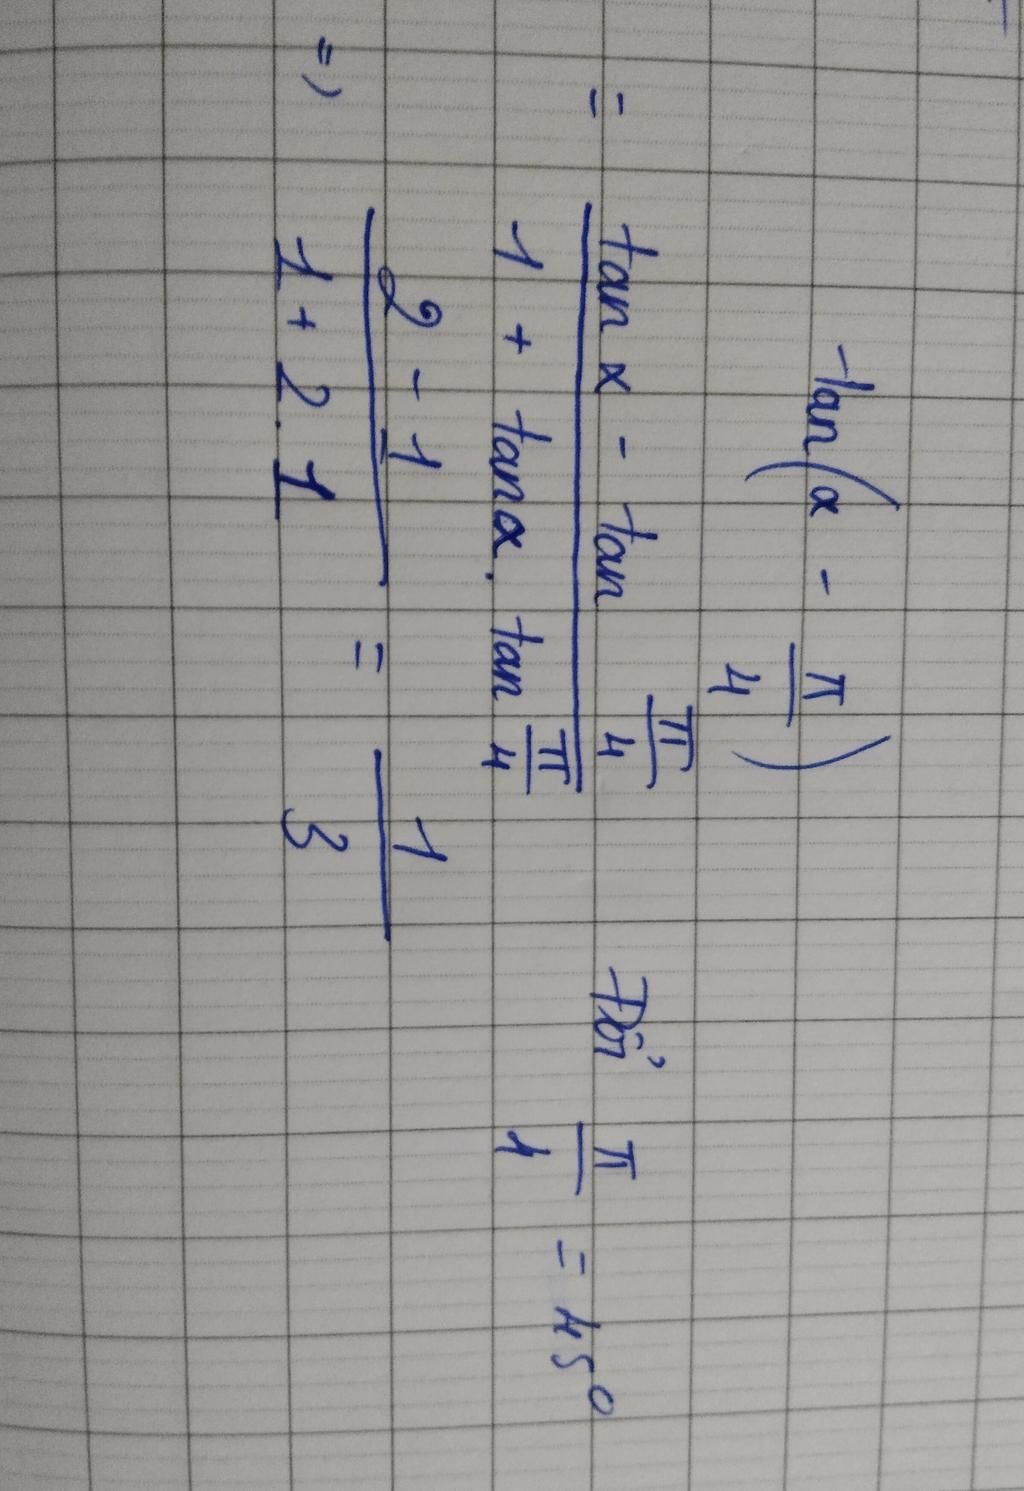 tan(α - π/4)
= (tan α - tan π/4)/(1 + tan α . tan π/4) Đổi π/4 = 45°
=> (2 - 1)/(1 + 2 . 1) = 1/3